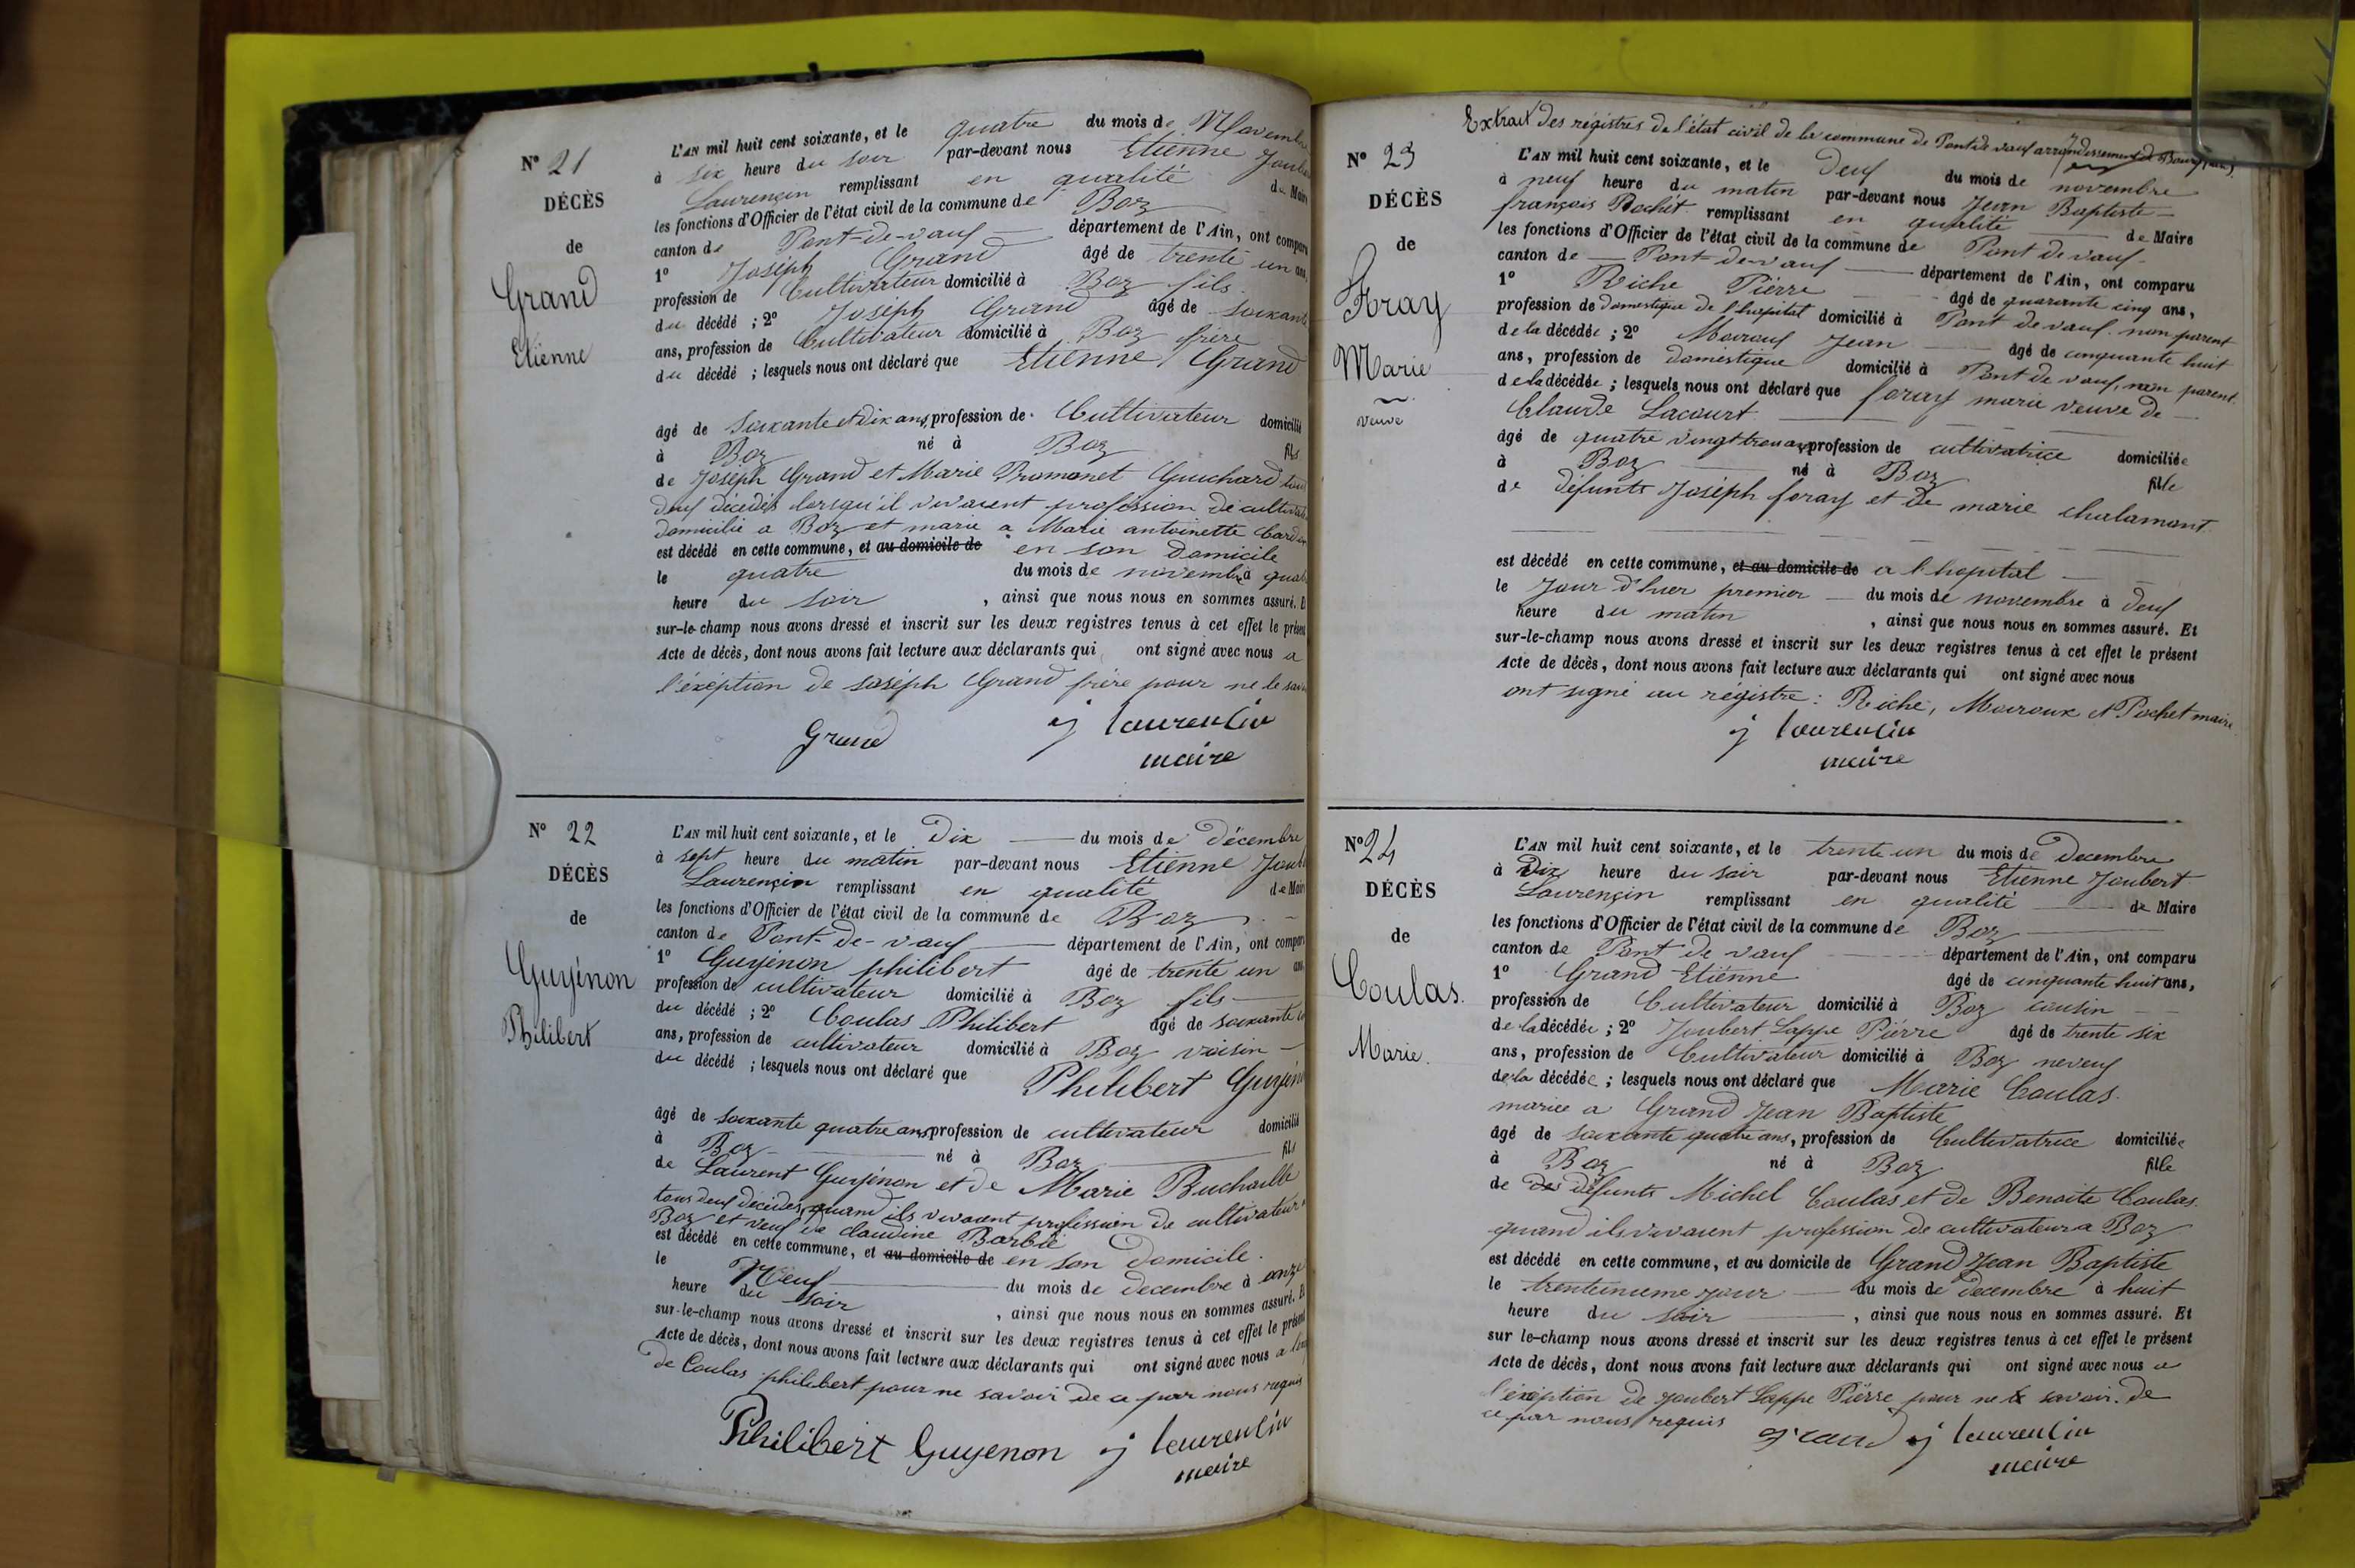 N° 21
DÉCÈS
de
Grand
Etienne
L'AN mil huit cent soixante, et le quatre du mois de Novembre
à six heure du soir par-devant nous Etienne Joub
Laurençin remplissant en qualité de Maire
les fonctions d'Officier de l'état civil de la commune de Boz
canton de Pont-de-vauf département de l'Ain, ont comparu
1° Joseph Grand âgé de trente un ans,
profession de Cultivateur domicilié à Boz fils
du décédé ; 2° Joseph Grand âgé de soixante
ans, profession de Cultivateur domicilié à Boz frère
du décédé ; lesquels nous ont déclaré que Etienne Grand
âgé de soixante et dix ans, profession de Cultivateur domicilié
à Boz né à Boz fils
de Joseph Grand et Marie Promonet Guichard tous
deuf décédés lorsqu'il vivaient profession de cultivat
domicilie a Boz et marie a Marie antoinette Card
est décédé en cette commune, et au domicile de en son domicile
le quatre du mois de novembre à quat
heure du soir , ainsi que nous nous en sommes assuré. Et
sur-le-champ nous avons dressé et inscrit sur les deux registres tenus à cet effet le présent
Acte de décès, dont nous avons fait lecture aux déclarants qui ont signé avec nous a
l'éxéption de joséph Grand frère pour ne le savoi
Grand j laurencin
maire
N° 22
DÉCÈS
de
Guyénon
Philibert
L'AN mil huit cent soixante, et le Dix du mois de décembre
à sept heure du matin par-devant nous Etienne Joub
Laurençin remplissant en qualité de Maire
les fonctions d'Officier de l'état civil de la commune de Boz
canton de Pont-de-vauf département de l'Ain, ont comparu
1° Guyénon philibert âgé de trente un ans
profession de cultivateur domicilié à Boz fils
du décédé ; 2° Coulas Philibert âgé de soixante
ans, profession de cultivateur domicilié à Boz voisin
du décédé ; lesquels nous ont déclaré que Philibert Guyéno
âgé de soixante quatre ans, profession de cultivateur domicilié
à Boz né à Boz fils
de Laurent Guyénon et de Marie Buchaille
tous deuf décédés, quand ils vivaient profession de cultivateur a
Boz et veuf de claudine Barbié
est décédé en cette commune, et au domicile de en son domicile.
le Neuf du mois de decembre à onze
heure du soir , ainsi que nous nous en sommes assuré. Et
sur-le-champ nous avons dressé et inscrit sur les deux registres tenus à cet effet le présent
Acte de décès, dont nous avons fait lecture aux déclarants qui ont signé avec nous a l'ex
de Coulas philibert pour ne savoir de ce par nous requis
Philibert Guyenon j laurencin
maire
Extrait des régistres de l'état civil de la commune de Pont de vauf arrondissement de Bourg (ain).
N° 23
DÉCÈS
de
Foray
Marie
veuve
L'AN mil huit cent soixante, et le deuf du mois de novembre
à neuf heure du matin par-devant nous Jean Baptiste
françois Pochet remplissant en qualité de Maire
les fonctions d'Officier de l'état civil de la commune de Pont de vauf
canton de Pont de vauf département de l'Ain, ont comparu
1° Riche Pierre âgé de quarante cinq ans,
profession de domestique de l'hopital domicilié à Pont de vauf non parent
de la décédée ; 2° Moirouf Jean âgé de cinquante huit
ans, profession de domestique domicilié à Pont de vauf, non parent
de la décédée ; lesquels nous ont déclaré que foray marie veuve de
Claude Lacourt
âgé de quatre vingt trois ans, profession de cultivatrice domiciliée
à Boz né à Boz fille
de défunts Joséph foray et de marie chalamont
est décédé en cette commune, et au domicile de a l'hopital
le Jour d'hier premier du mois de novembre à deuf
heure du matin , ainsi que nous nous en sommes assuré. Et
sur-le-champ nous avons dressé et inscrit sur les deux registres tenus à cet effet le présent
Acte de décès, dont nous avons fait lecture aux déclarants qui ont signé avec nous
ont signé au régistre : Riche, Moiroux et Pochet maire
j laurencin
maire
N° 24
DÉCÈS
de
Coulas.
Marie.
L'AN mil huit cent soixante, et le trente un du mois de Decembre
à Dix heure du soir par-devant nous Etienne Joubert
Laurençin remplissant en qualité de Maire
les fonctions d'Officier de l'état civil de la commune de Boz
canton de Pont de vauf département de l'Ain, ont comparu
1° Grand Etiénne âgé de cinquante huit ans,
profession de Cultivateur domicilié à Boz cousin
de la décédée ; 2° Joubert Lappe Piérre âgé de trente six
ans, profession de Cultivateur domicilié à Boz neveuf
de la décédée ; lesquels nous ont déclaré que Marie Coulas.
mariee a Grand Jean Baptiste
âgé de soixante quatre ans, profession de Cultivatrice domiciliée
à Boz né à Boz fille
de des défunts Michel Coulas et de Benoite Coulas.
quand ils vivaient profession de cultivateur a Boz
est décédé en cette commune, et au domicile de Grand Jean Baptiste
le trenteunieme jour du mois de decembre à huit
heure du soir , ainsi que nous nous en sommes assuré. Et
sur le-champ nous avons dressé et inscrit sur les deux registres tenus à cet effet le présent
Acte de décès, dont nous avons fait lecture aux déclarants qui ont signé avec nous a
l'éxéption de Joubert Lappe Piérre pour ne le savoir. de
ce par nous requis
grand j laurencin
maire